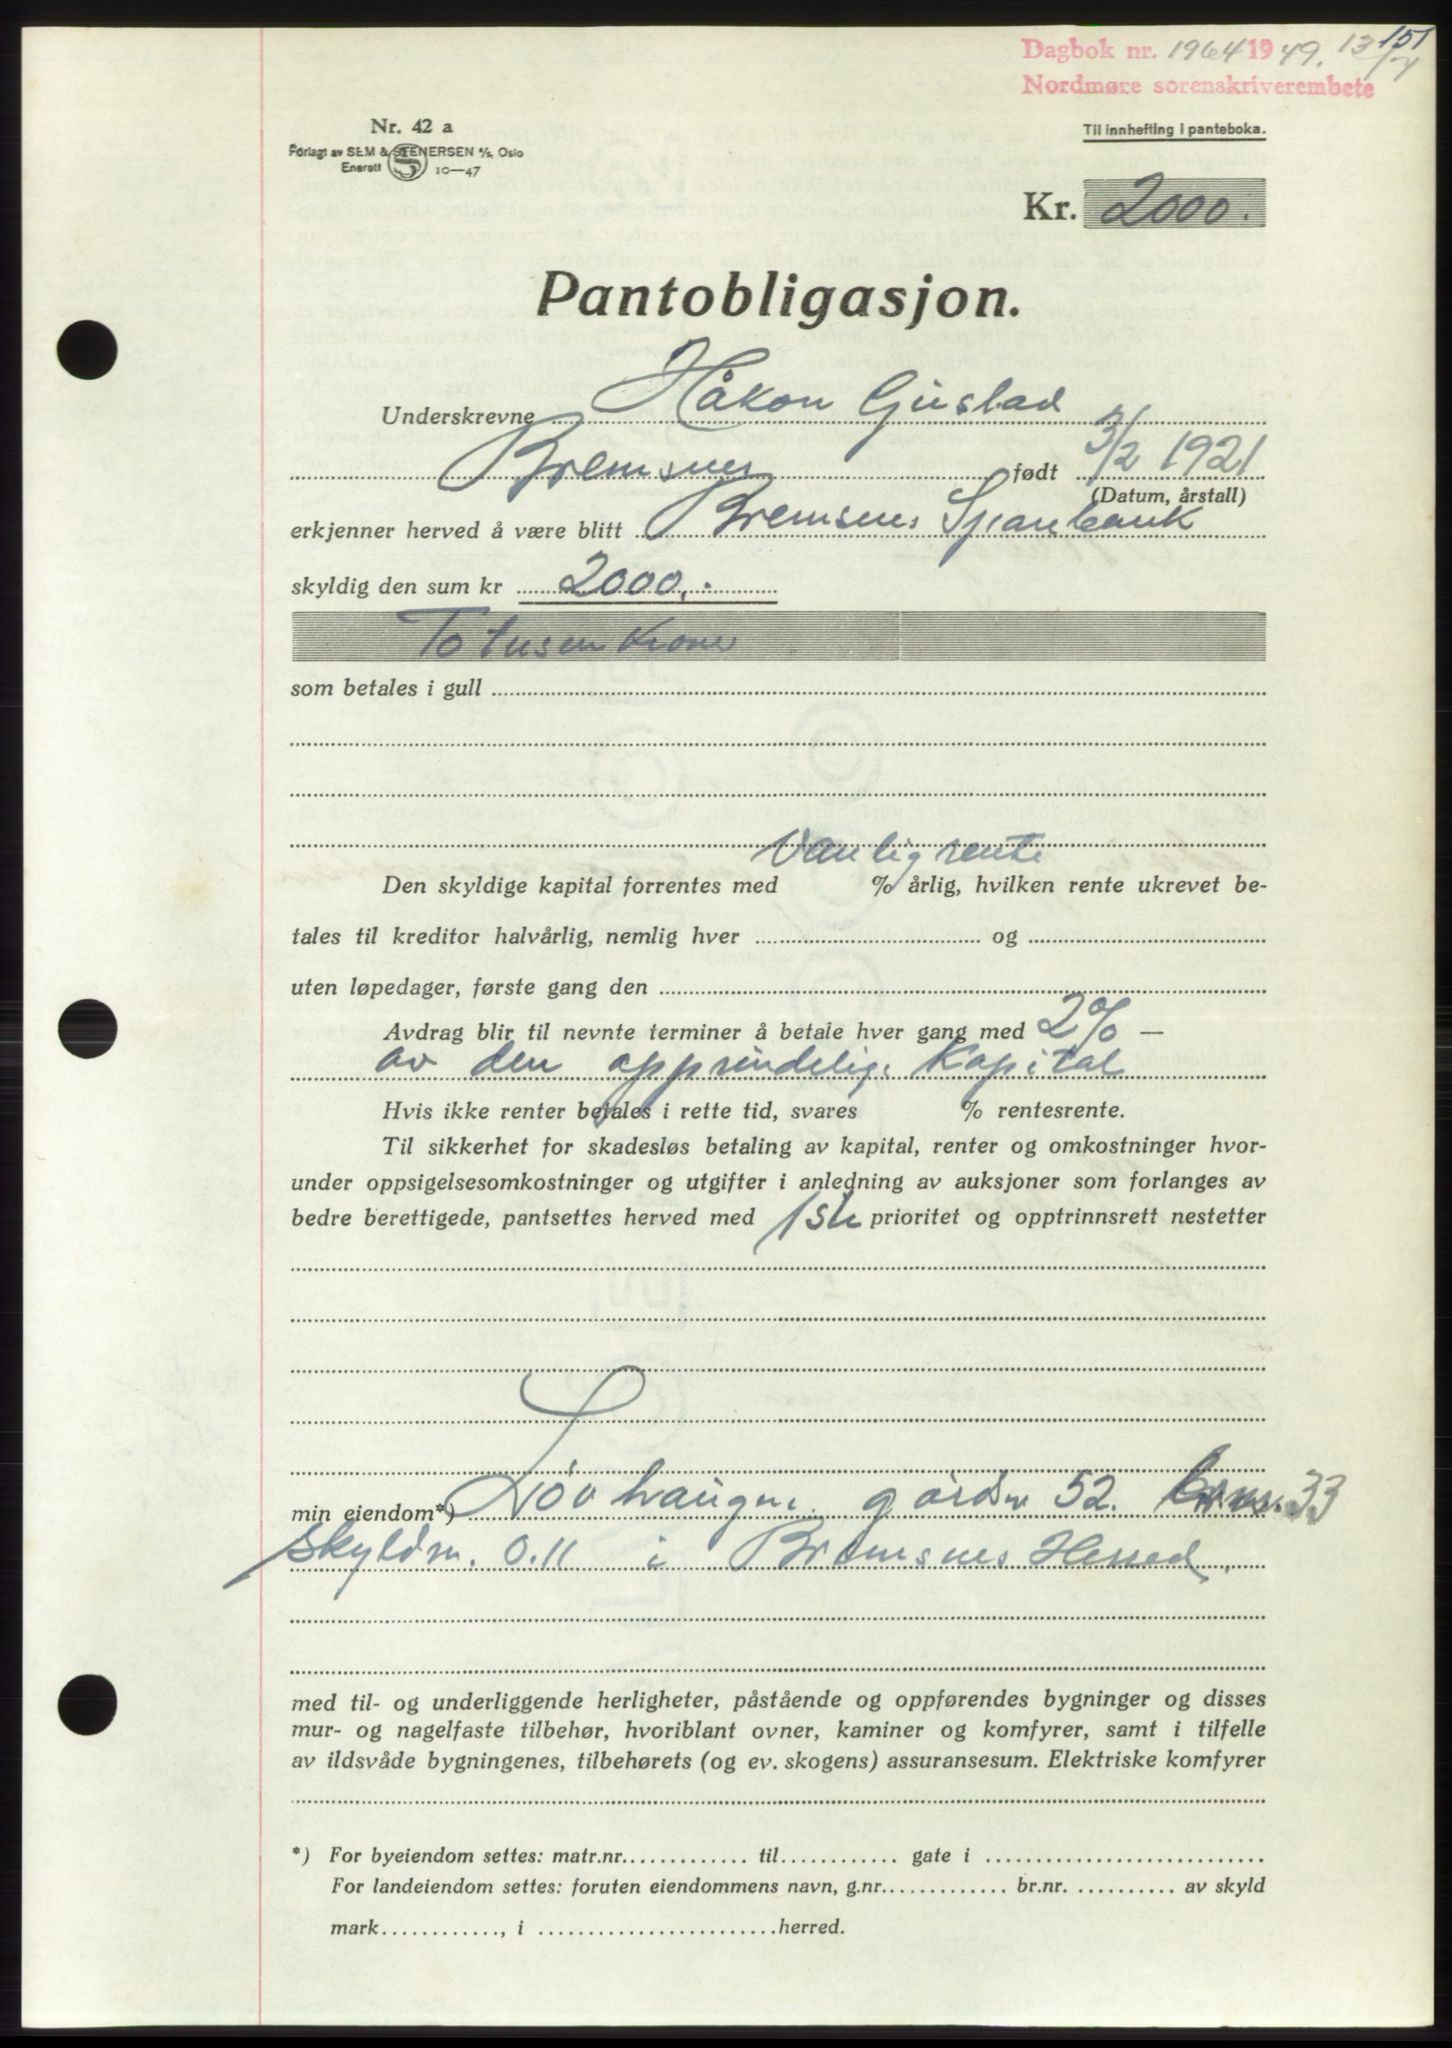 151
Dagbok nr. 1964 1949. 13/7
Nordmøre sorenskriverembete
Nr. 42 a
Forlagt av SEM & STENERSEN A/S, Oslo
Enerett 10—47
Til innhefting i panteboka.
Kr. 2000.
Pantobligasjon.
Underskrevne Håkon Gustad
Bremsnes født 3/2 1921
(Datum, årstall)
erkjenner herved å være blitt Bremsnes Sparebank
skyldig den sum kr 2000.-
To tusen kroner
som betales i gull
Vanlig rente
Den skyldige kapital forrentes med % årlig, hvilken rente ukrevet be-
tales til kreditor halvårlig, nemlig hver og
uten løpedager, første gang den
Avdrag blir til nevnte terminer å betale hver gang med 2% —
av den opprindelige Kapital
Hvis ikke renter betales i rette tid, svares % rentesrente.
Til sikkerhet for skadesløs betaling av kapital, renter og omkostninger hvor-
under oppsigelsesomkostninger og utgifter i anledning av auksjoner som forlanges av
bedre berettigede, pantsettes herved med 1ste prioritet og opptrinnsrett nestetter
min eiendom*) Løvhaugen gårdsnr 52. br.nr. 33
skyldm. 0.11 i Bremsnes Herred.
med til- og underliggende herligheter, påstående og oppførendes bygninger og disses
mur- og nagelfaste tilbehør, hvoriblant ovner, kaminer og komfyrer, samt i tilfelle
av ildsvåde bygningenes, tilbehørets (og ev. skogens) assuransesum. Elektriske komfyrer
*) For byeiendom settes: matr.nr. til gate i
For landeiendom settes: foruten eiendommens navn, g.nr. br.nr. av skyld
mark , i herred.